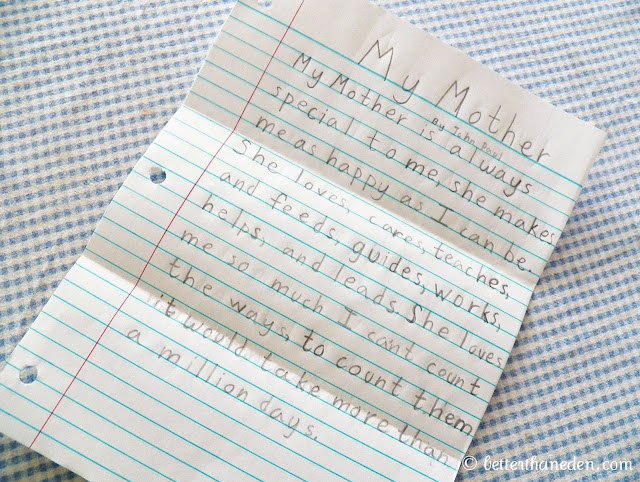 My Mother
By John Paul
My Mother is always
special to me, she makes
me as happy as I can be.
She loves, cares, teaches,
and feeds, guides, works,
helps, and leads. She loves
me so much I can't count
the ways, to count them
it would take more than
a million days.
© betterthaneden.com